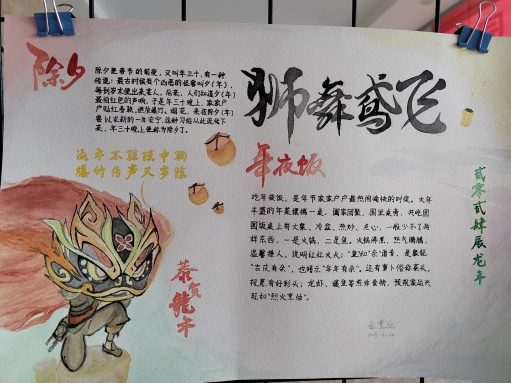 除夕
除夕是春节的前夜，又叫年三十，有一种
传说：最古时候有个凶恶的怪兽叫夕(年)，
每到岁末便出来害人，后来，人们知道夕(年)
最怕红色的声响，于是年三十晚上，家家户
户贴红春联，燃放爆竹、烟花，来驱除夕(年)
兽，以求新的一年安宁。这种习俗从此流传下
来，年三十晚上便称为除夕了。
狮舞鸢飞
爆竹传声又岁除
年夜饭
吃年夜饭，是年节家家户户最热闹愉快的时候。大年
丰盛的年菜摆满一桌，阖家团聚，围坐桌旁，共吃团
圆饭。桌上有大菜、冷盆、热炒、点心，一般少不了两
样东西，一是火锅，二是鱼。火锅沸煮，热气腾腾，
温馨撩人，说明红红火火；"鱼"和"余"谐音，是象征
"吉庆有余"，也暗示"年年有余"。还有萝卜俗称菜头，
祝愿有好彩头；龙虾、爆鱼等煎炸食物，预祝家运兴
旺如"烈火烹油"。
恭贺龍年
贰零贰肆辰龙年